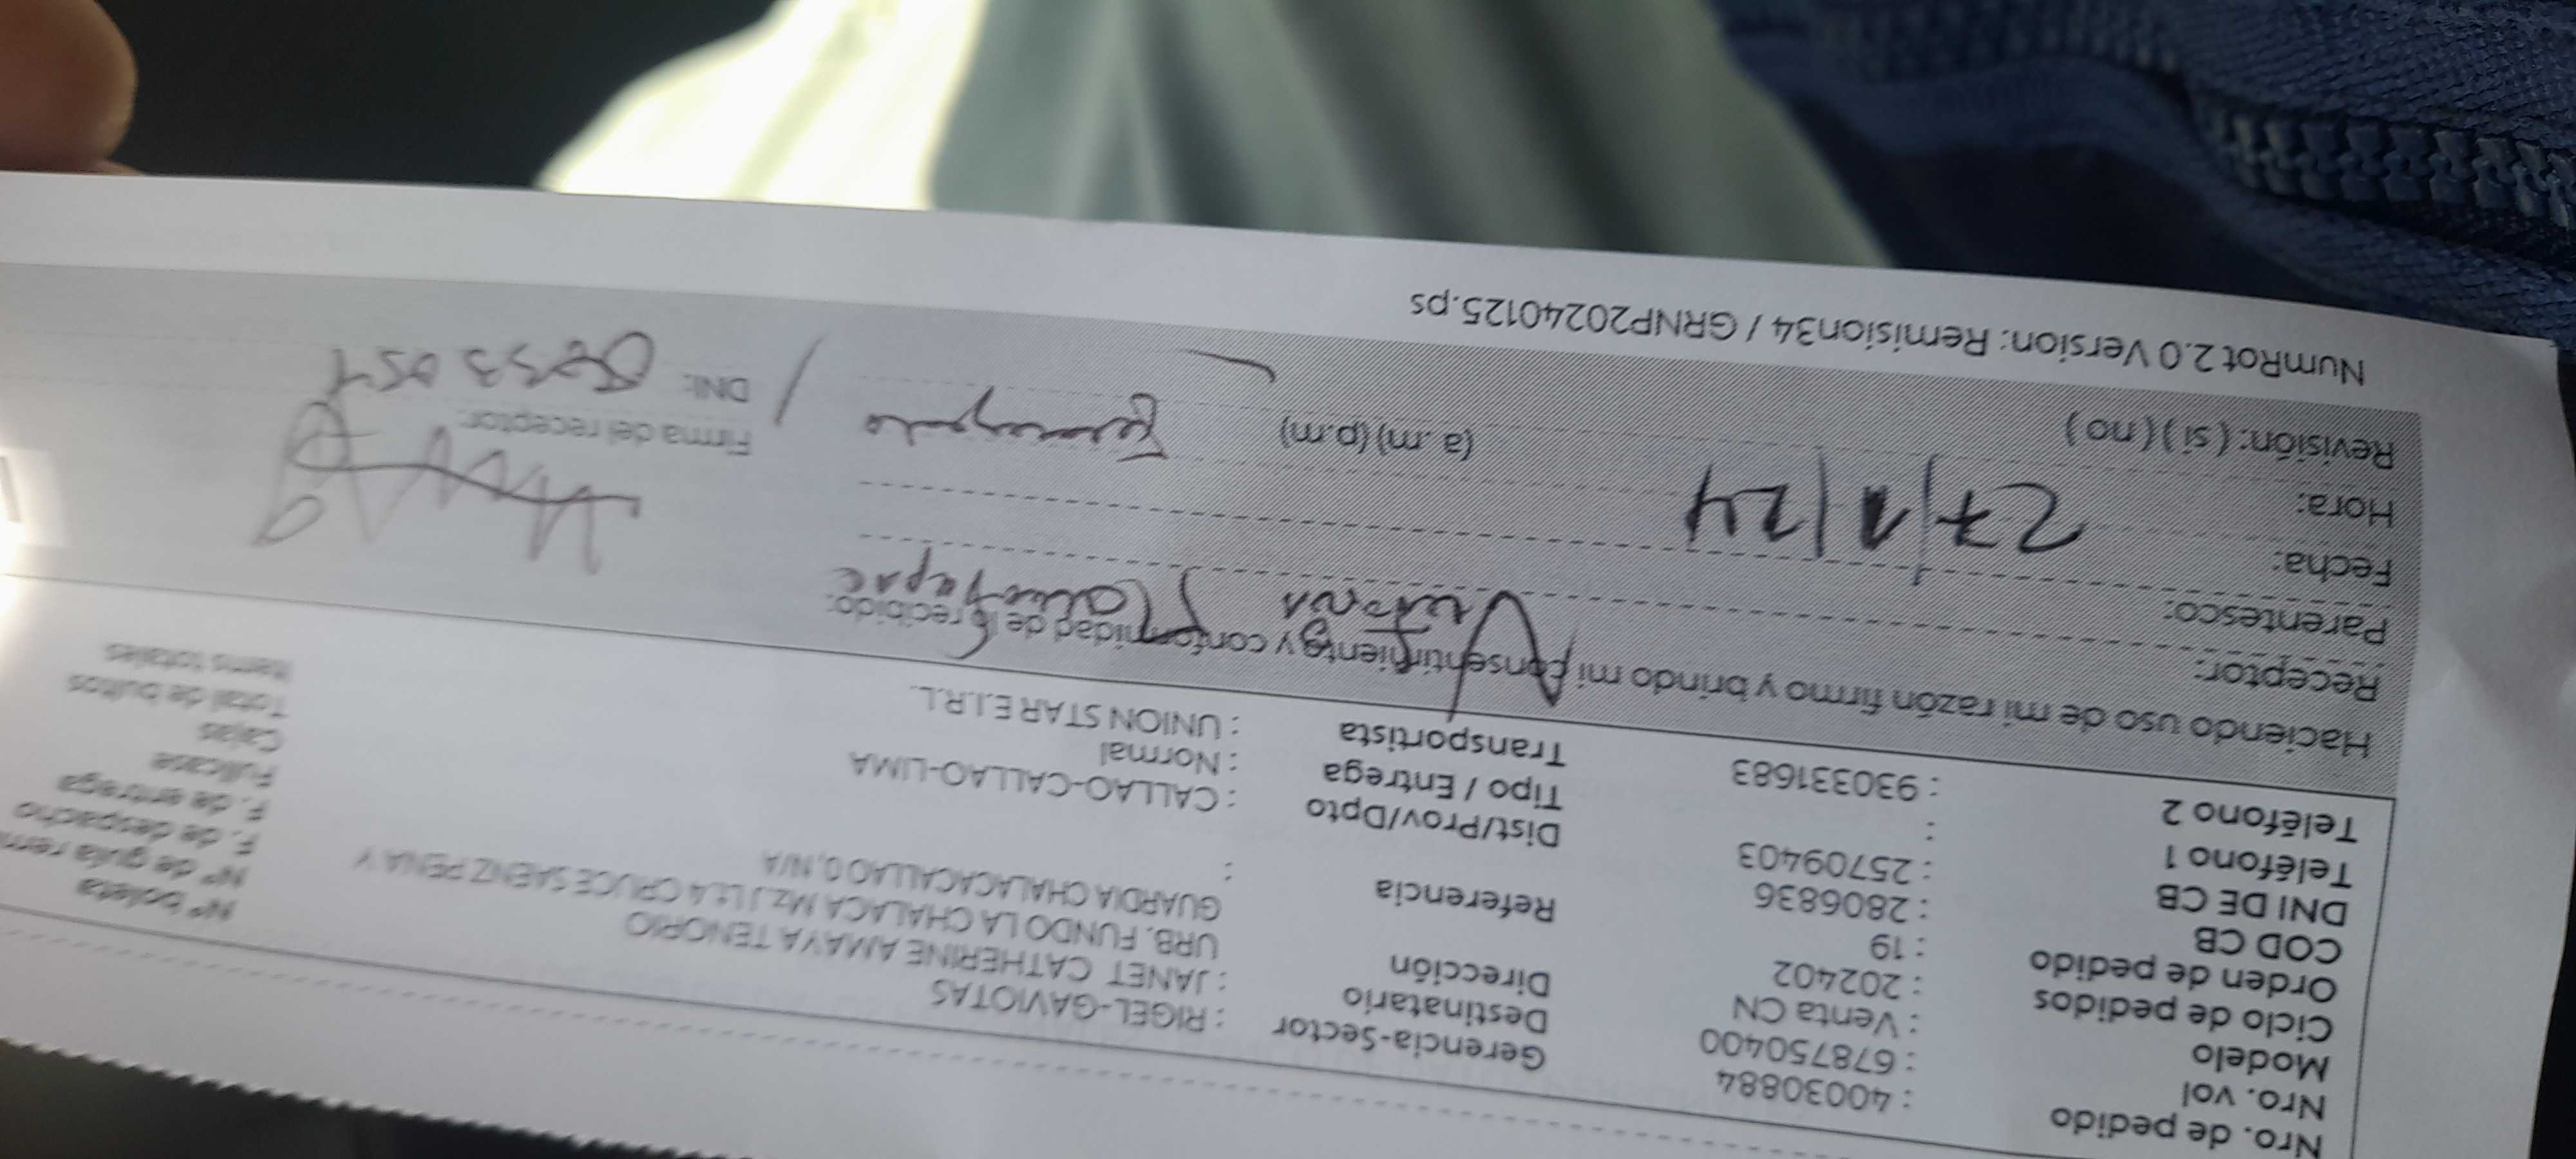 Nro. de pedido : 40030884
Nro. vol : 678750400
Modelo : Venta CN
Ciclo de pedidos : 202402
Orden de pedido : 19
COD CB : 2806836
DNI DE CB : 25709403
Teléfono 1 :
Teléfono 2 : 930331683
Gerencia-Sector : RIGEL-GAVIOTAS
Destinatario : JANET CATHERINE AMAYA TENORIO
Dirección : URB. FUNDO LA CHALACA Mz.J Lt.4 CRUCE SAENZ PENA Y
GUARDIA CHALACACALLAO 0, N/A
Referencia :
Dist/Prov/Dpto : CALLAO-CALLAO-LIMA
Tipo / Entrega : Normal
Transportista : UNION STAR E.I.R.L.
N° boleta
N° de guía remi
F. de despacho
F. de entrega
Fullcase
Cajas
Total de bultos
Items totales
Haciendo uso de mi razón firmo y brindo mi consentimiento y conformidad de lo recibido:
Receptor:
Parentesco:
Fecha: 27/1/24
Hora: (a.m) (p.m)
Revisión: ( sí ) ( no )
Firma del receptor:
DNI:
NumRot 2.0 Version: Remision34 / GRNP20240125.ps